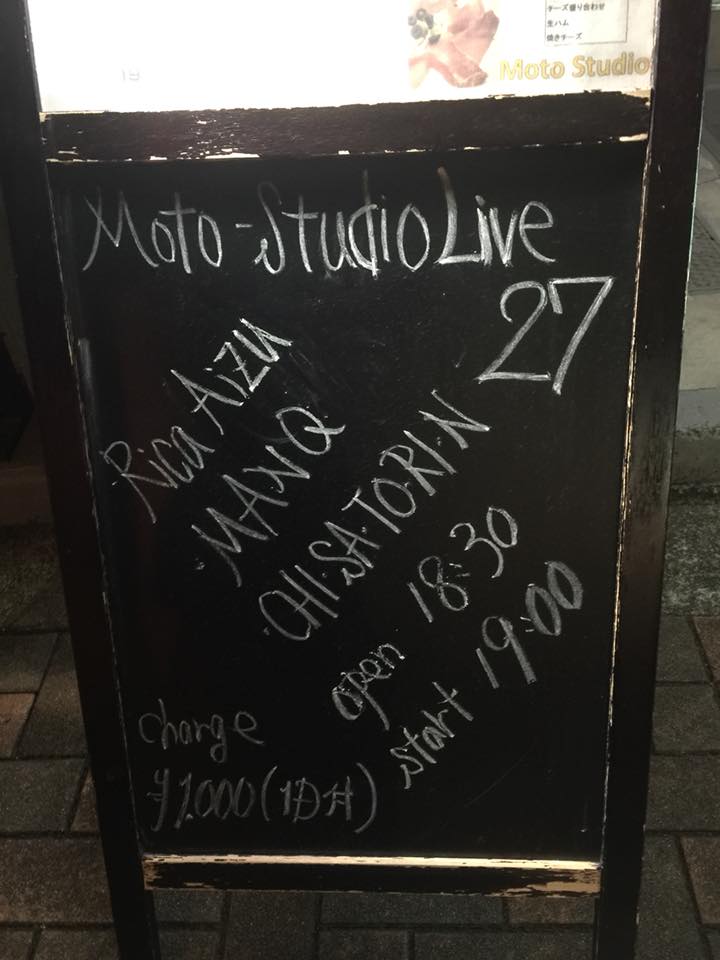 チーズ盛り合わせ
生ハム
焼きチーズ
Moto Studio
Moto-Studio Live
27
・Rica AiZU
・MANQ
・CHI・SA・TO・RI・N
open 18:30
start 19:00
charge
¥1.000(1D付)